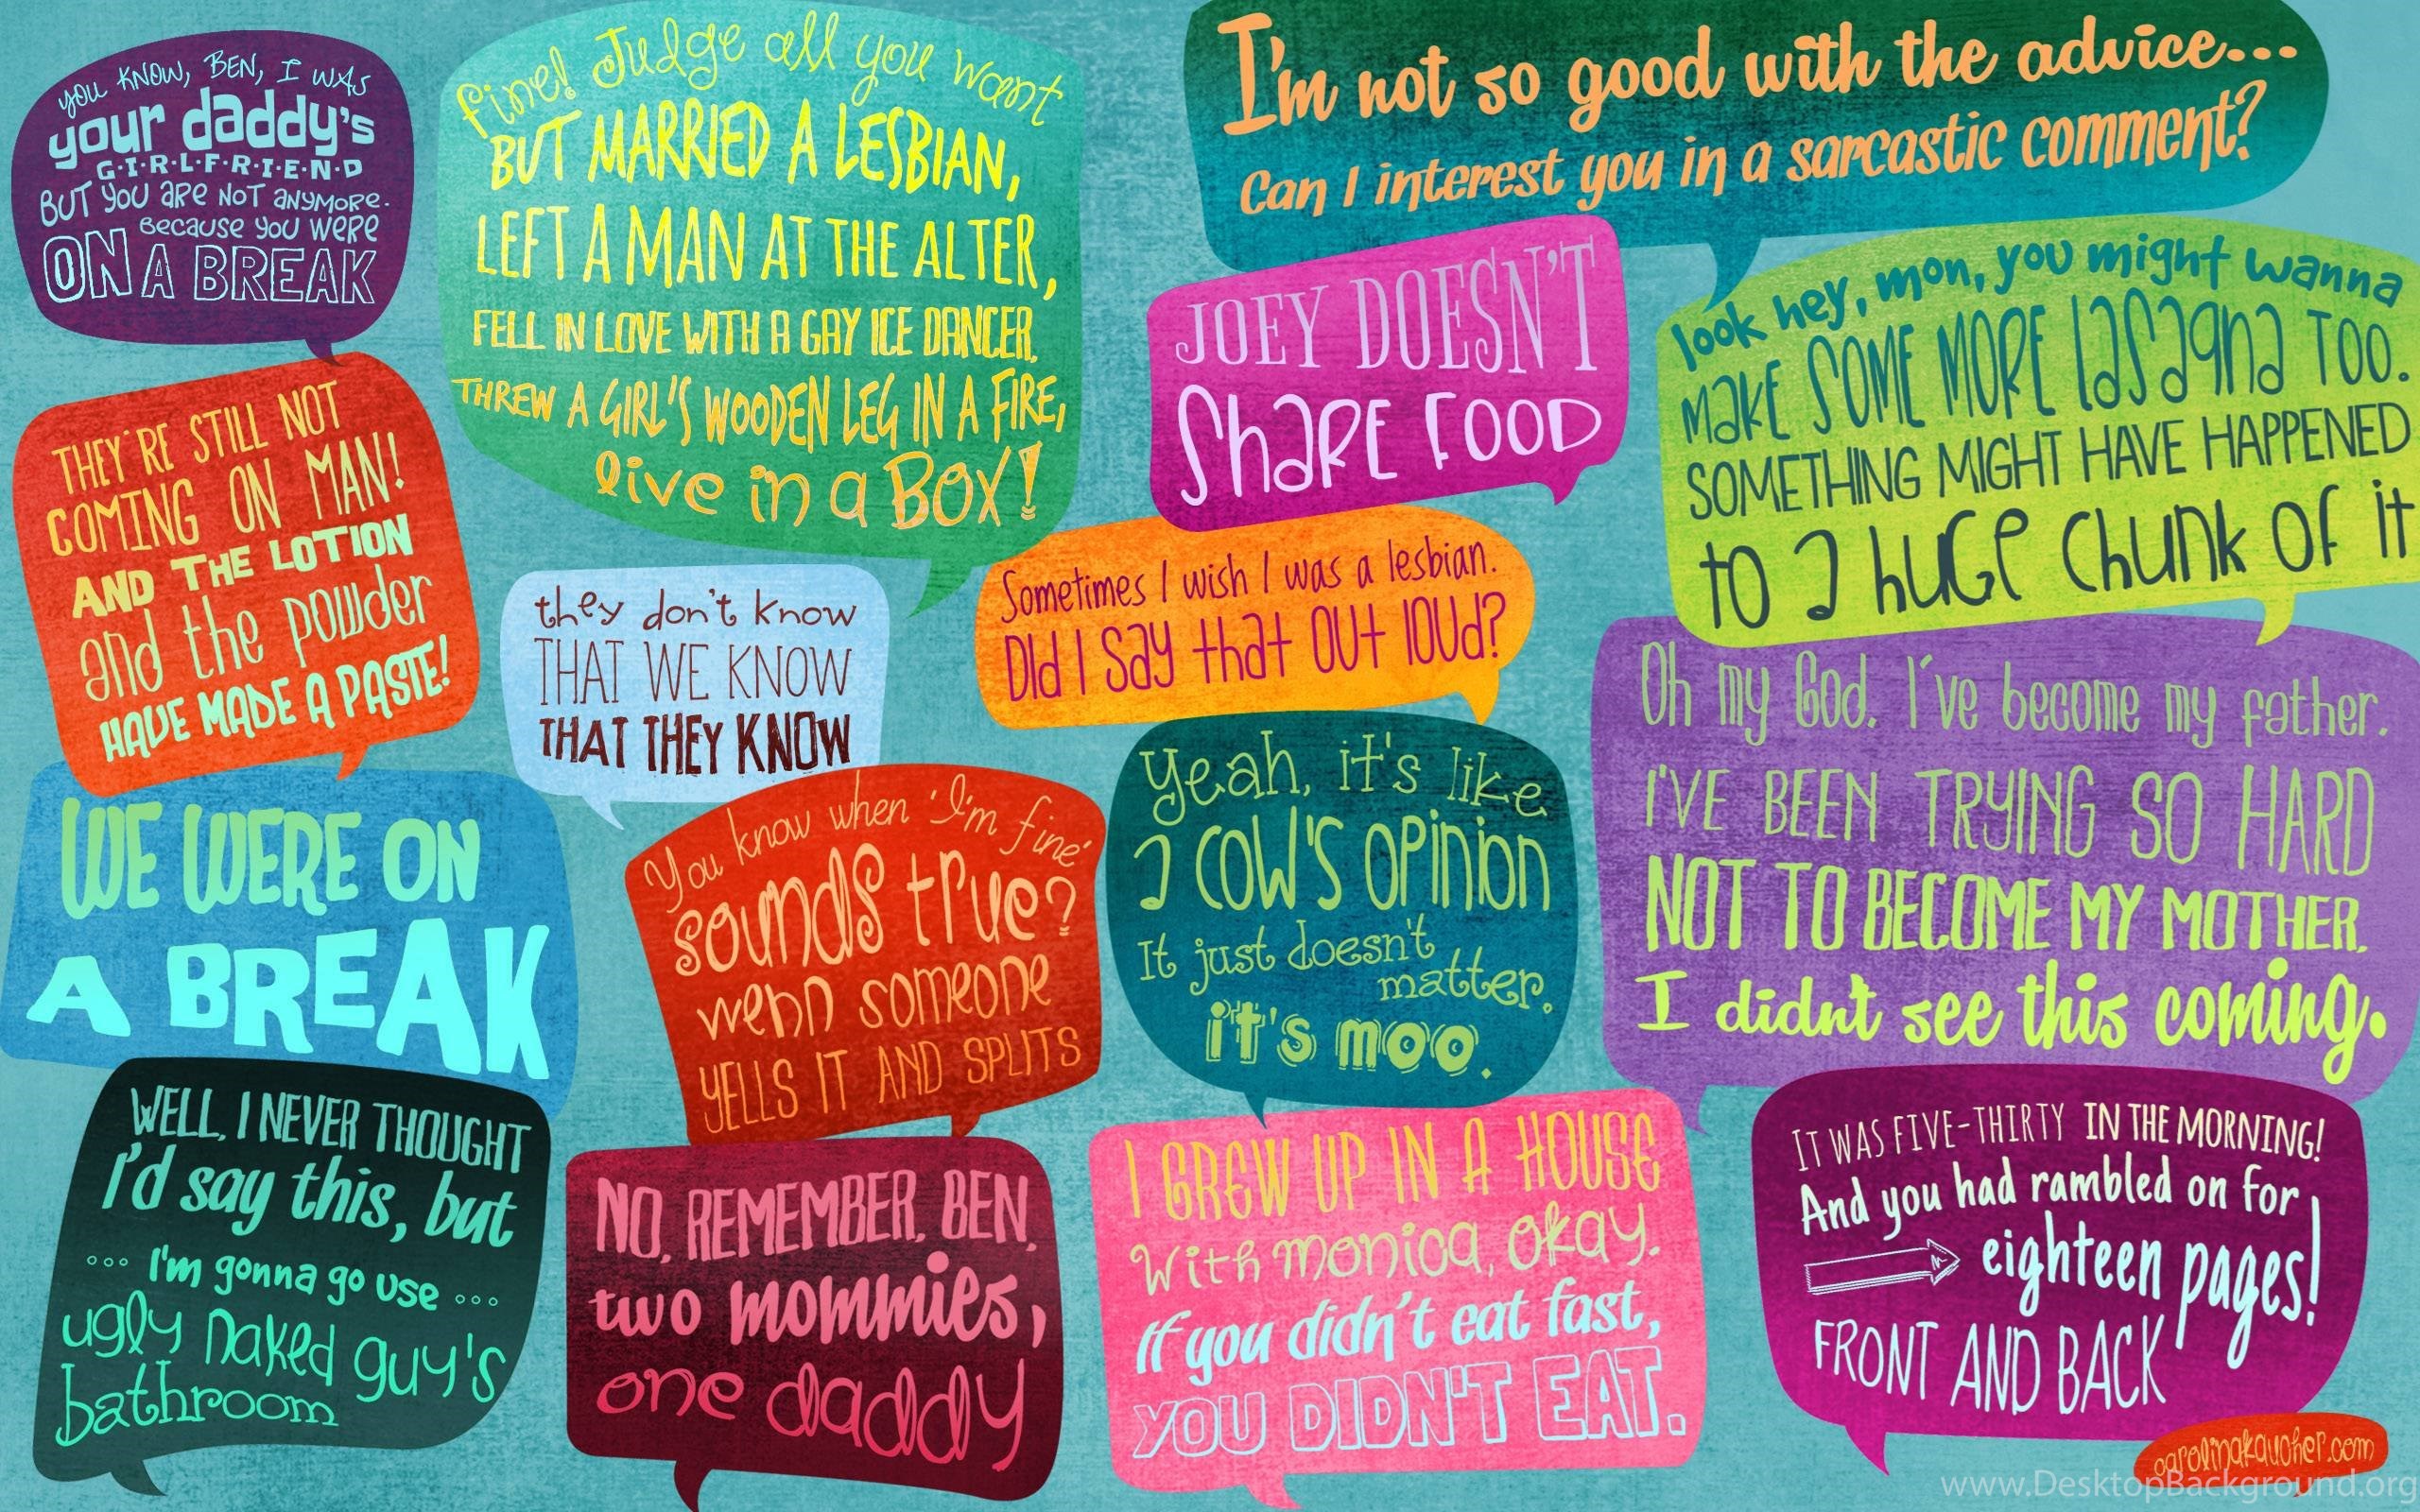 YOU KNOW, BEN, I WAS
your daddy's
G·I·R·L·F·R·I·E·N·D
BUT YOU ARE NOT ANYMORE.
BECAUSE YOU WERE
ON A BREAK
fine! Judge all you want
BUT MARRIED A LESBIAN,
LEFT A MAN AT THE ALTER,
FELL IN LOVE WITH A GAY ICE DANCER,
THREW A GIRL'S WOODEN LEG IN A FIRE,
live in a BOX!
I'm not so good with the advice...
Can I interest you in a sarcastic comment?
JOEY DOESN'T
SHARE FOOD
look hey, mon, you might wanna
MAKE SOME MORE lasagna TOO.
SOMETHING MIGHT HAVE HAPPENED
to a huge chunk of it
THEY'RE STILL NOT
COMING ON MAN!
AND THE LOTION
and the powder
HAVE MADE A PASTE!
they don't know
THAT WE KNOW
THAT THEY KNOW
Sometimes I wish I was a lesbian.
Did I say that out loud?
Oh my God. I've become my father.
I'VE BEEN TRYING SO HARD
NOT TO BECOME MY MOTHER.
I didn't see this coming.
WE WERE ON
A BREAK
You know when 'I'm fine'
sounds true?
wenn someone
YELLS IT AND SPLITS
Yeah, it's like
a cow's opinion
It just doesn't
matter.
it's moo.
WELL, I NEVER THOUGHT
I'd say this, but
... I'm gonna go use ...
ugly naked guy's
bathroom
NO, REMEMBER, BEN,
two mommies,
one daddy
I GREW UP IN A HOUSE
With monica, okay.
If you didn't eat fast,
YOU DIDN'T EAT.
IT WAS FIVE-THIRTY IN THE MORNING!
And you had rambled on for
eighteen pages!
FRONT AND BACK
carolinakaucher.com
www.DesktopBackground.org